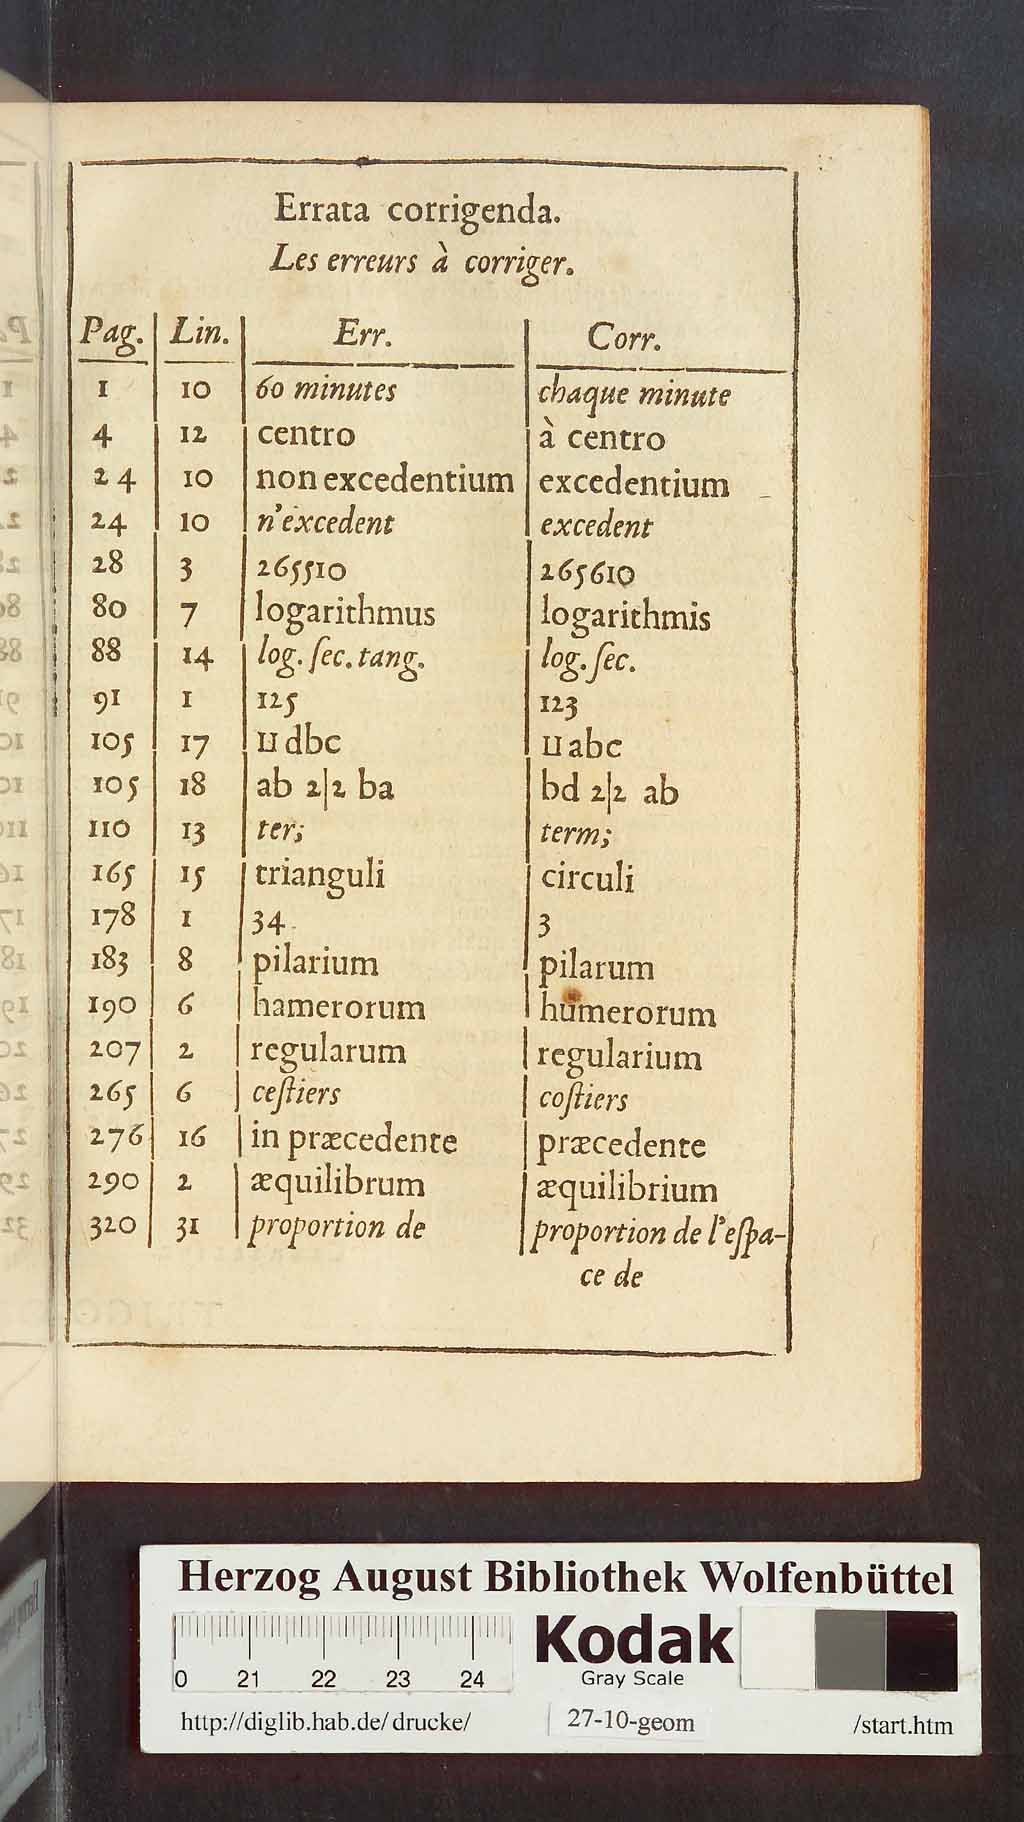 Errata corrigenda.
Les erreurs à corriger.
Pag. Lin. Err. Corr.
1 10 60 minutes chaque minute
4 12 centro à centro
24 10 non excedentium excedentium
24 10 n'excedent excedent
28 3 265510 265610
80 7 logarithmus logarithmis
88 14 log. ſec. tang. log. ſec.
91 1 125 123
105 17 dbc abc
105 18 ab 2|2 ba bd 2|2 ab
110 13 ter; term;
165 15 trianguli circuli
178 1 34 3
183 8 pilarium pilarum
190 6 hamerorum humerorum
207 2 regularum regularium
265 6 ceſtiers coſtiers
276 16 in præcedente præcedente
290 2 æquilibrum æquilibrium
320 31 proportion de proportion de l'eſpa-
ce de
Herzog August Bibliothek Wolfenbüttel
0 21 22 23 24
Kodak
Gray Scale
http://diglib.hab.de/drucke/ 27-10-geom /start.htm